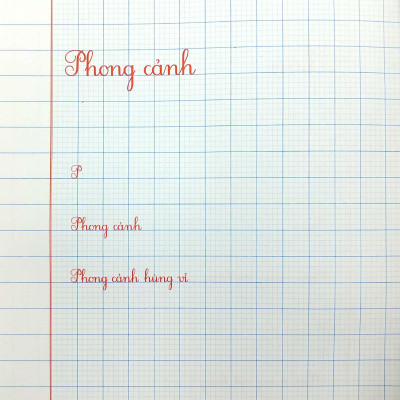 Phong cảnh
P
Phong cảnh
Phong cảnh hùng vĩ